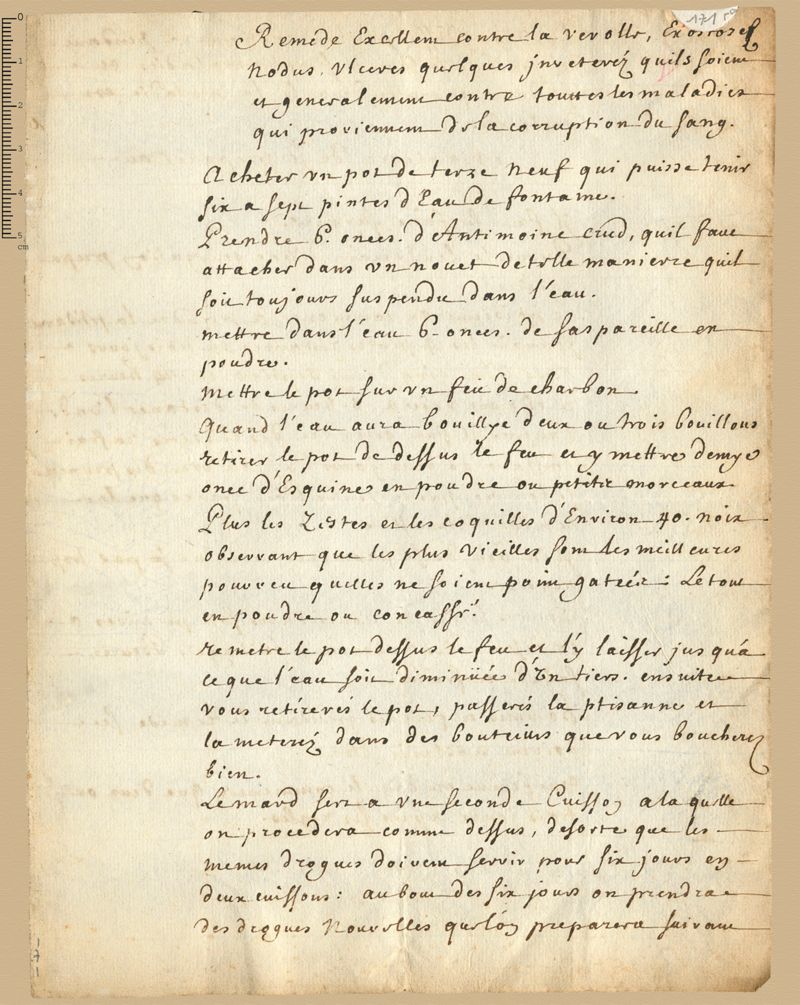 1715
Remede Excellem contre la verolle, Exostoses
Nodus, Vlceres quelques jnveterez quils soiem
et generalement contre touttes les maladies
qui proviennem de la corruption du sang.
Acheter vn pot de terre neuf qui puisse tenir
six a sept pintes d'Eau de fontaine.
Prendre 6. onces. d'Antimoine crud, quil faut
attacher dans vn nouet de telle manierre quil
soit toujours suspendu dans l'eau.
mettre dans l'eau 6. onces. de saspareille en
poudre.
Mettre le pot sur vn feu de charbon
Quand l'eau aura bouillye deux ou trois bouillons
retirer le pot de dessus le feu et y mettre demye
once d'Esquine en poudre ou petits morceaux
Plus les Zestes et les coquilles d'Environ 40. noix
observant que les plus vieilles som les meilleures
pourveu quelles ne soiem poim gateés: Le tout
en poudre ou concassé.
remetre le pot dessus le feu et l'y laisser jusqu'a
ce que l'eau soit diminüée d'Vn tiers. ensuitte
vous retirerés le pot, passerés la ptisanne et
la meterez dans des bouteilles que vous boucherez
bien.
Le mard sert a vne seconde Cuisson a la quelle
on procedera comme dessus, desorte que les
memes drogues doivem servir pour six jours en
deux cuissons: au bout des six jours on prendra
des drogues Nouvelles quelón preparera suivam
cm
0
1
2
3
4
5
-7-